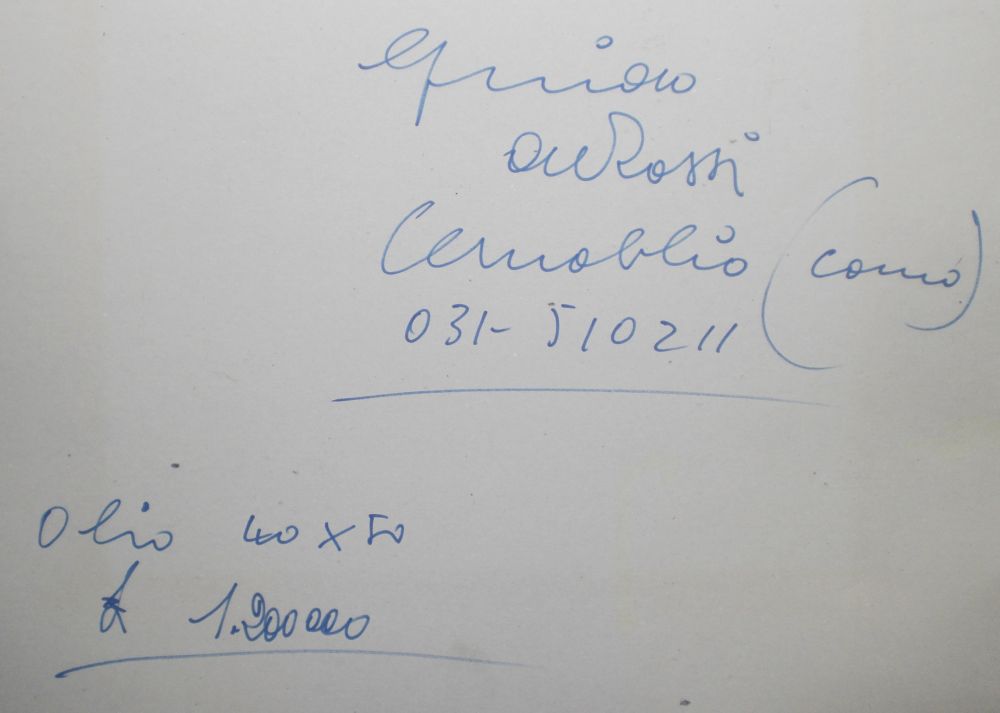 Guido
De Rossi
Cernobbio (Como)
031-510211
Olio 40x50
£ 1.200000